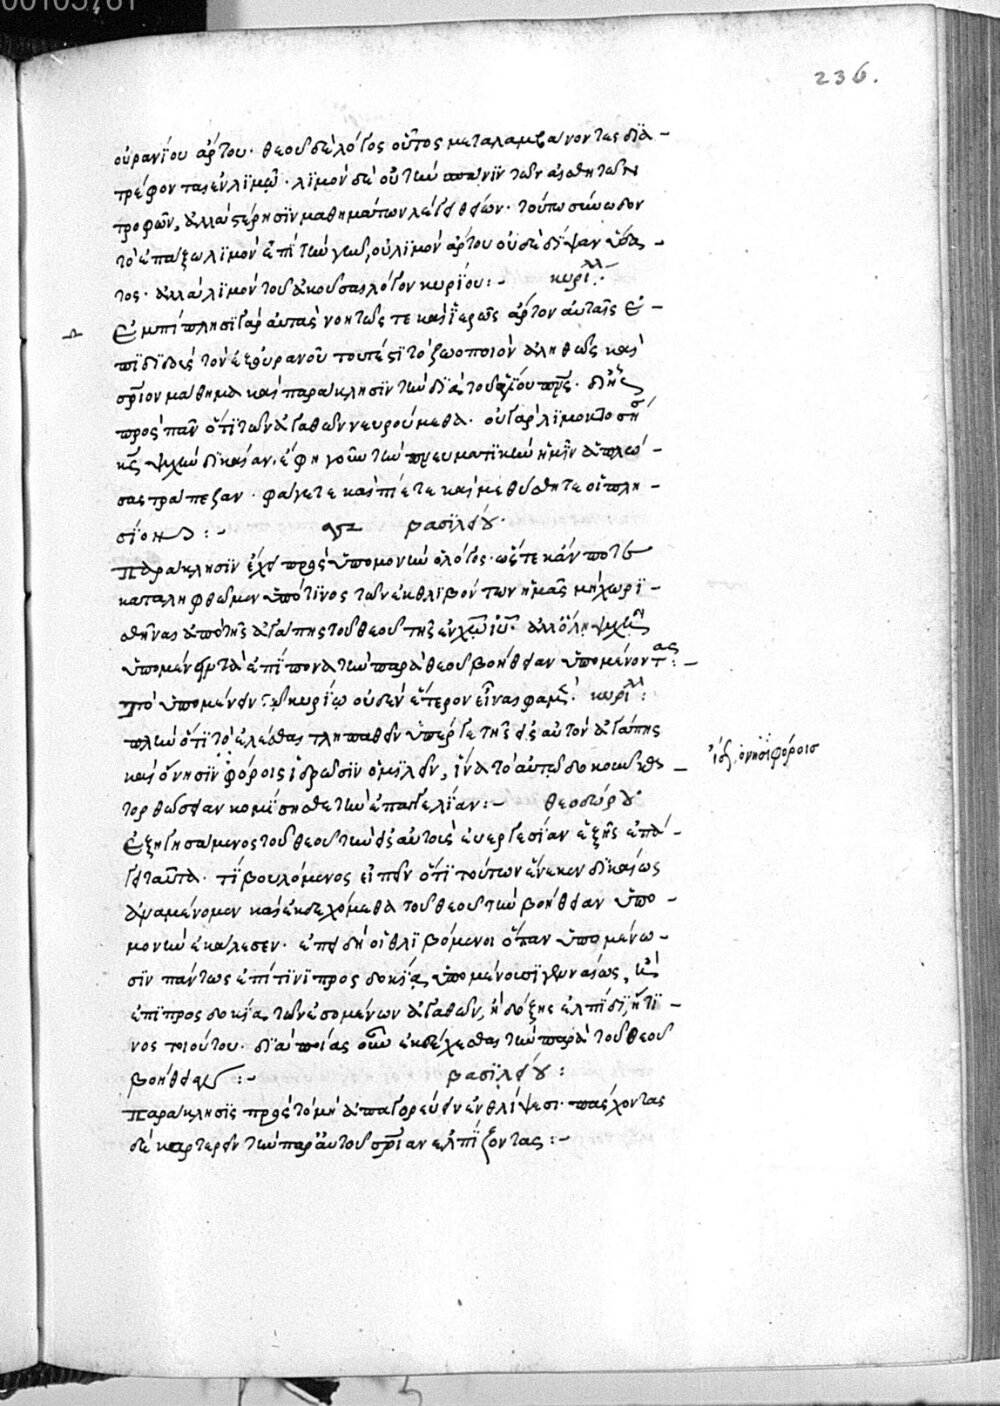 00105761
236.
οὐρανίου ἄρτου· θεοῦ δὲ λόγος οὗτος μεταλαμβάνοντες δια-
τρέφονται ἐν λιμῷ· λιμὸν δὲ οὐ τὴν σπάνιν τῶν αἰσθητῶν
τροφῶν, ἀλλὰ στέρησιν μαθημάτων λέγει θείων·
τὸ ἐπάξω λιμὸν ἐπὶ τὴν γῆν, οὐ λιμὸν ἄρτου οὐδὲ δίψαν ὕδα-
τος· ἀλλὰ λιμὸν τοῦ ἀκοῦσαι λόγον κυρίου:- κυρίλλ:
Ἐμπίπλησι γὰρ αὐτὰς νοητῶς τε καὶ ἱερῶς ἄρτον αὐταῖς ἐ-
πιδιδοὺς τὸν ἐξ οὐρανοῦ τουτέστι τὸ ζωοποιὸν ἀληθῶς καὶ
σριον μάθημα καὶ παράκλησιν τὴν διὰ τοῦ ἁγίου πνς· δι' ἧς
πρὸς πᾶν ὅτι τῶν ἀγαθῶν νευρούμεθα· οὐ γὰρ λιμοκτονήσει
κς ψυχὴν δικαίαν· ἔφη γοῦν τὴν πνευματικὴν ἡμῖν ἁπλώ-
σας τράπεζαν· φάγετε καὶ πίετε καὶ μεθύσθητε οἱ πλη-
σίον :- βασιλείου·
Παράκλησιν ἔχει πρὸς ὑπομονὴν ὁ λόγος· ὥστε κἄν ποτε
καταληφθῶμεν ὑπό τινος τῶν ἐκθλιβόντων ἡμᾶς μὴ χωρι-
σθῆναι ἀπὸ τῆς ἀγάπης τοῦ θεοῦ τῆς ἐν χῶ ἰῦ· ἀλλ' ὅλῃ ψυχῇ
ὑπομένειν τὰ ἐπίπονα τὴν παρὰ θεοῦ βοήθειαν ὑπομένοντας:-
Τὸ ὑπομένειν τῷ κυρίῳ οὐδὲν ἕτερον εἶναι φαμέν· κυρίλλ:
πλὴν ὅτι τὸ ἑλέσθαι τληπαθεῖν ὑπέρ γε τῆς εἰς αὐτὸν ἀγάπης
καὶ ὀνησιφόροις ἱδρῶσιν ὁμιλεῖν, ἵνα τὸ αὐτῷ δοκοῦν κα-
τορθώσειαν κομίσησθε τὴν ἐπαγγελίαν:- θεοδώρου
ἰσ, ὀνησιφόροισ
Ἐξηγησάμενος τοῦ θεοῦ τὴν εἰς αὐτοὺς εὐεργεσίαν ἑξῆς ἐπά-
γει ταῦτα· τί βουλόμενος εἰπεῖν ὅτι τούτων ἕνεκεν δικαίως
ἀναμένομεν καὶ ἐκδεχόμεθα τοῦ θεοῦ τὴν βοήθειαν ὑπο-
μονὴν ἐκάλεσεν· ἐπειδὴ οἱ θλιβόμενοι ὅταν ὑπομένω-
σιν πάντως ἐπί τινι προσδοκίᾳ ὑπομένουσι γενναίως, καὶ
ἐπὶ προσδοκίᾳ τῶν ἐσομένων ἀγαθῶν, ἢ δόξης ἐλπίδι, ἤ τι-
νος τοιούτου· διὰ ποίας οὖν ἐκδέχεσθαι τὴν παρὰ τοῦ θεοῦ
βοήθειαν:- βασιλείου:
Παράκλησις πρὸς τὸ μὴ ἀπαγορεύειν ἐν θλίψεσι· πάσχοντας
δὲ καρτερεῖν τὴν παρ' αὐτοῦ σρίαν ἐλπίζοντας:-